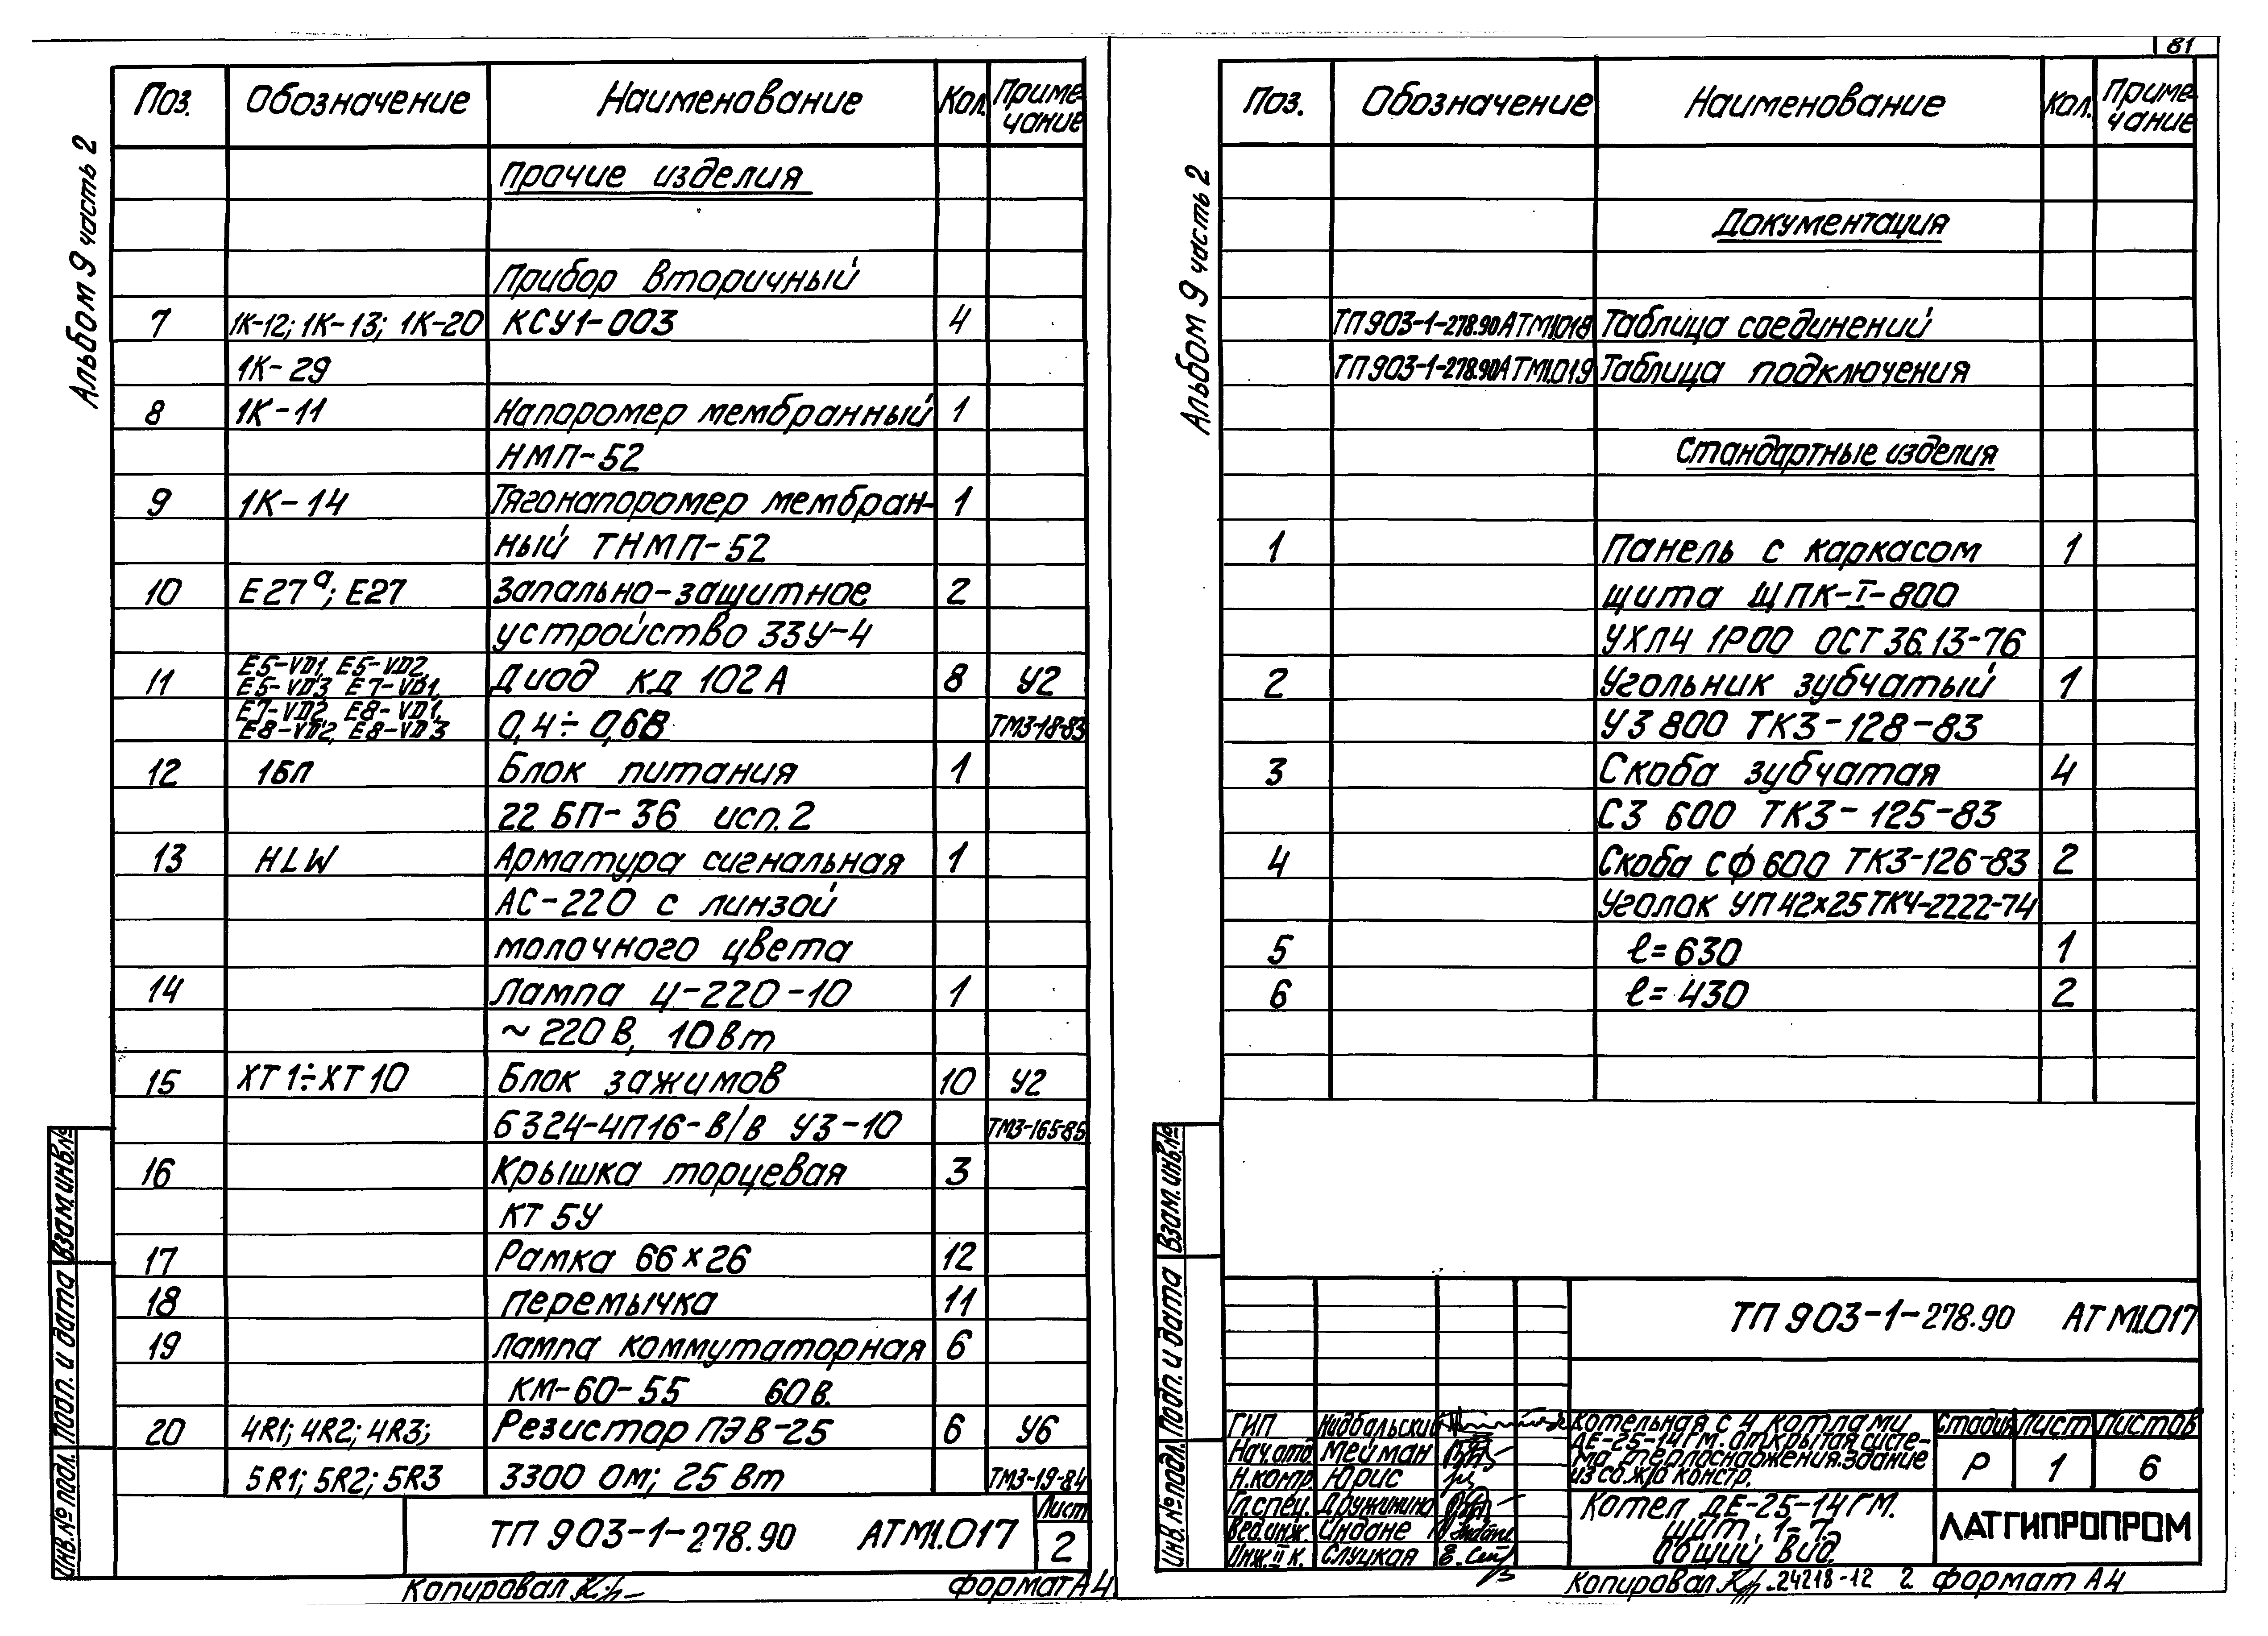 81
Альбом 9 часть 2
Поз. Обозначение Наименование Кол. Приме-
чание
Прочие изделия
Прибор вторичный
7 1К-12; 1К-13; 1К-20 КСУ1-003 4
1К-29
8 1К-11 Напоромер мембранный 1
НМП-52
9 1К-14 Тягонапоромер мембран- 1
ный ТНМП-52
10 Е27а; Е27 Запально-защитное 2
устройство ЗЗУ-4
11 Е5-VD1, Е5-VD2, Диод КД 102А 8 У2
Е5-VD3 Е7-VD1,
Е7-VD2, Е8-VD1, 0,4÷0,6В ТМ3-18-83
Е8-VD2, Е8-VD3
12 1БП Блок питания 1
22 БП-36 исп. 2
13 HLW Арматура сигнальная 1
АС-220 с линзой
молочного цвета
14 Лампа Ц-220-10 1
~220В, 10Вт
15 ХТ1÷ХТ10 Блок зажимов 10 У2
БЗ24-4П16-В/В У3-10 ТМ3-165-85
16 Крышка торцевая 3
КТ 5У
17 Рамка 66х26 12
18 перемычка 11
19 Лампа коммутаторная 6
КМ-60-55 60В.
20 4R1; 4R2; 4R3; Резистор ПЭВ-25 6 У6
5R1; 5R2; 5R3 3300 Ом; 25 Вт ТМ3-19-84
ТП 903-1-278.90 АТМ1.017 Лист
2
Инв.№ подл. Подп. и дата Взам.инв.№
Копировал Формат А4
Альбом 9 часть 2
Поз. Обозначение Наименование Кол. Приме-
чание
Документация
ТП903-1-278.90АТМ1.018 Таблица соединений
ТП903-1-278.90АТМ1.019 Таблица подключения
Стандартные изделия
1 Панель с каркасом 1
щита ЩПК-I-800
УХЛ4 1Р00 ОСТ 36.13-76
2 Угольник зубчатый 1
УЗ 800 ТК3-128-83
3 Скоба зубчатая 4
СЗ 600 ТК3-125-83
4 Скоба СФ600 ТК3-126-83 2
Уголок УП42х25ТК4-2222-74
5 ℓ=630 1
6 ℓ=430 2
ТП 903-1-278.90 АТМ1.017
ГИП Нидбальский
Нач.отд. Мейман
Н.контр. Юрис
Гл.спец. Дружинина
Вед.инж. Индане
Инж.II к. Слуцкая
Котельная с 4 котлами
ДЕ-25-14ГМ. открытая систе-
ма теплоснабжения. Здание
из сб.ж/б констр.
Стадия Лист Листов
Р 1 6
Котел ДЕ-25-14ГМ.
Щит 1-7.
Общий вид.
ЛАТГИПРОПРОМ
Инв.№подл. Подп. и дата Взам.инв.№
Копировал 24218-12 2 Формат А4